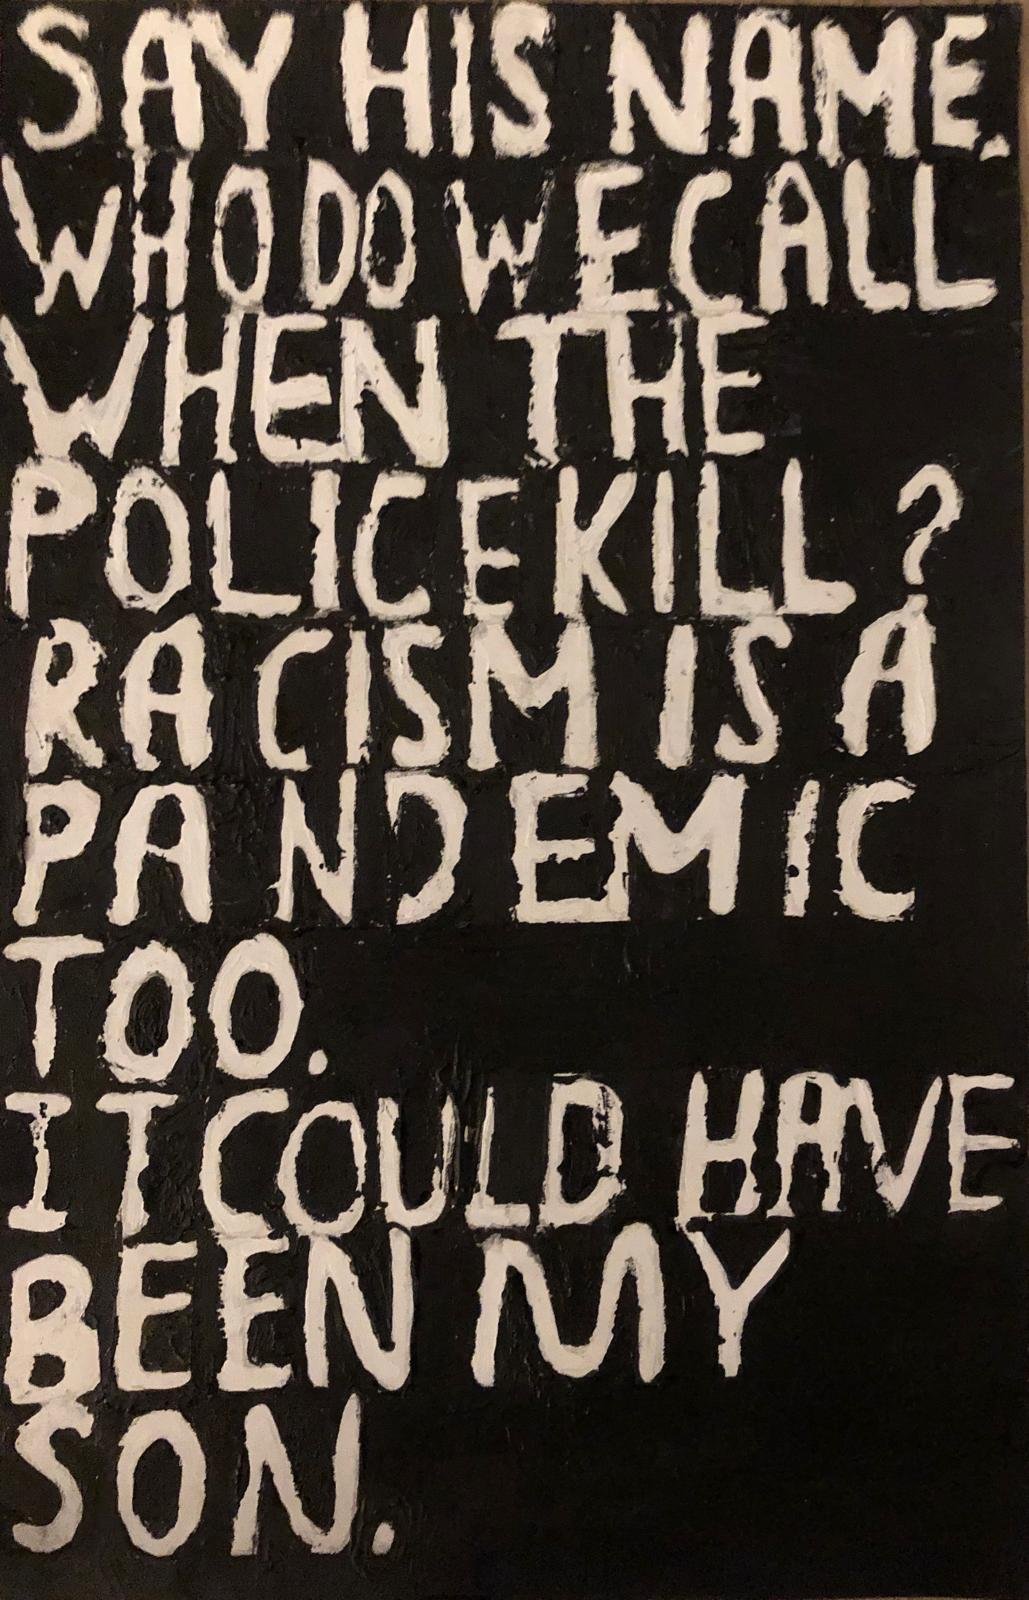 SAY HIS NAME.
WHO DO WE CALL
WHEN THE
POLICE KILL?
RACISM IS A
PANDEMIC
TOO.
IT COULD HAVE
BEEN MY
SON.